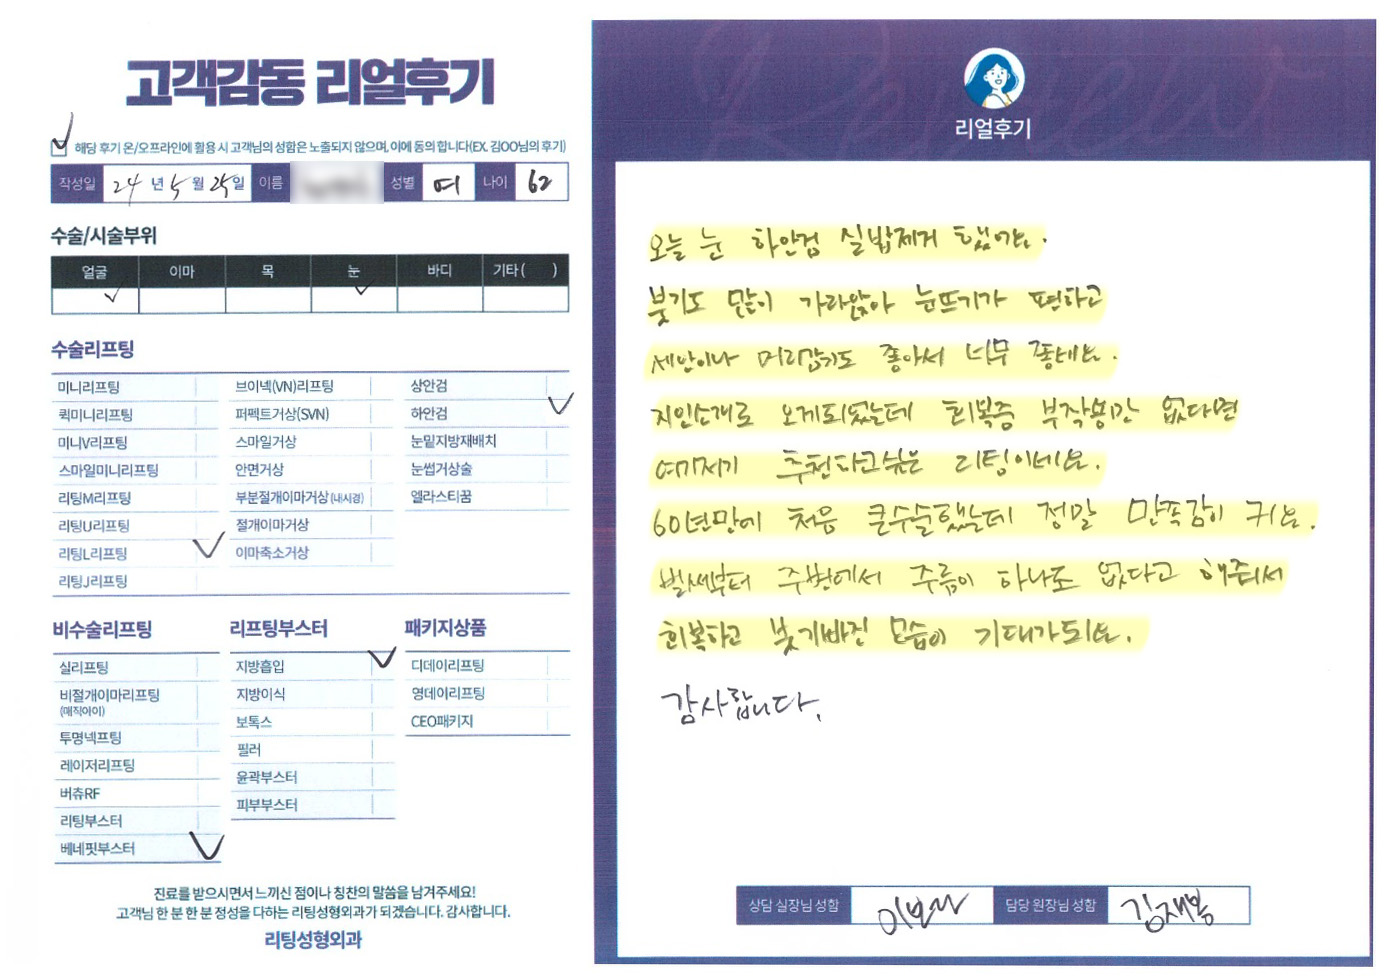 고객감동 리얼후기
해당 후기 온/오프라인에 활용 시 고객님의 성함은 노출되지 않으며, 이에 동의 합니다(EX. 김OO님의 후기)
작성일 24년 5월 25일 이름 성별 여 나이 62
수술/시술부위
얼굴 이마 목 눈 바디 기타( )
수술리프팅
미니리프팅
퀵미니리프팅
미니V리프팅
스마일미니리프팅
리팅M리프팅
리팅U리프팅
리팅L리프팅
리팅J리프팅
브이넥(VN)리프팅
퍼펙트거상(SVN)
스마일거상
안면거상
부분절개이마거상(내시경)
절개이마거상
이마축소거상
상안검
하안검
눈밑지방재배치
눈썹거상술
엘라스티꿈
비수술리프팅
실리프팅
비절개이마리프팅
(매직아이)
투명넥프팅
레이저리프팅
버츄RF
리팅부스터
베네핏부스터
리프팅부스터
지방흡입
지방이식
보톡스
필러
윤곽부스터
피부부스터
패키지상품
디데이리프팅
영데이리프팅
CEO패키지
진료를 받으시면서 느끼신 점이나 칭찬의 말씀을 남겨주세요!
고객님 한 분 한 분 정성을 다하는 리팅성형외과가 되겠습니다. 감사합니다.
리팅성형외과
Review
리얼후기
오늘 눈 하안검 실밥제거 했어요.
붓기도 많이 가라앉아 눈뜨기가 편하고
세안이나 머리감기도 좋아서 너무 좋네요.
지인소개로 오게되었는데 회복중 부작용만 없다면
여기저기 추천하고싶은 리팅이네요.
60년만에 처음 큰수술했는데 정말 만족감이 커요.
벌써부터 주방에서 주름이 하나도 없다고 해줘서
회복하고 붓기빠진 모습이 기대가되요.
감사합니다.
상담 실장님 성함 이보나 담당 원장님 성함 김재봉